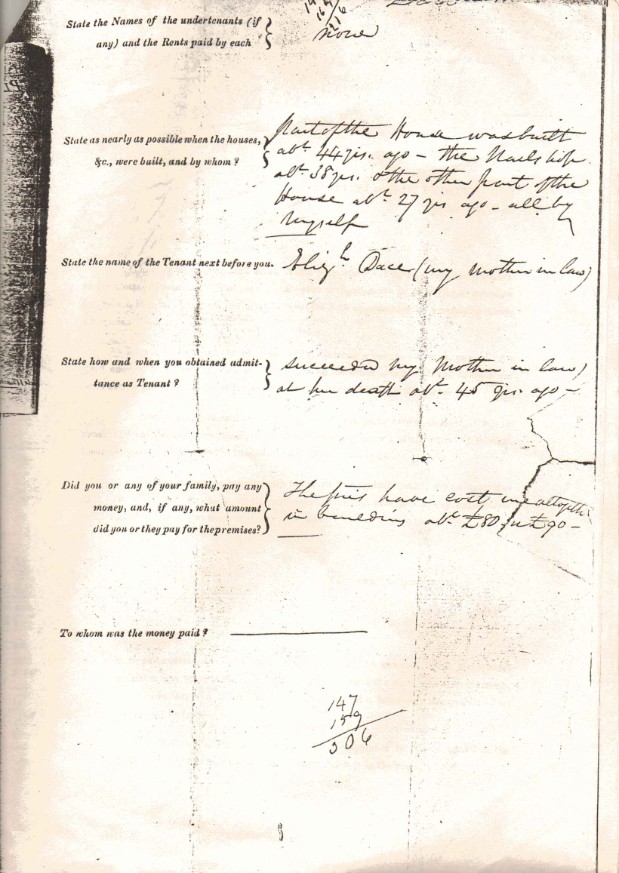 State the Names of the undertenants (if
any) and the Rents paid by each
none
State as nearly as possible when the houses,
&c., were built, and by whom?
Part of the House was built
abt. 44 yrs. ago - the Nailshop
abt. 38 yrs. & the other part of the
House abt. 27 yrs ago - all by
myself
State the name of the Tenant next before you.
Elizth. (my mother in law)
State how and when you obtained admit-
tance as Tenant?
Succeeded my Mother in law
at her death abt. 45 yrs. ago -
Did you or any of your family, pay any
money, and, if any, what amount
did you or they pay for the premises?
The have cost me altogether
in abt. £80 £90 -
To whom was the money paid?
147
159
306